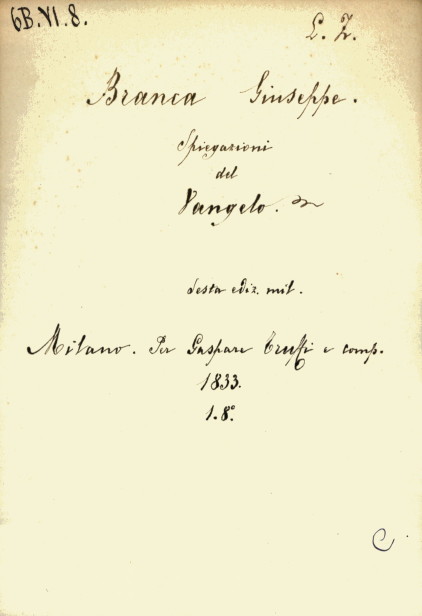 6B.VI.8.
L. Z.
Branca Giuseppe.
Spiegazioni
del
Vangelo.
Sesta ediz. mil.
Milano. Per Gaspare Truffi e comp.
1833.
1.8°
C.